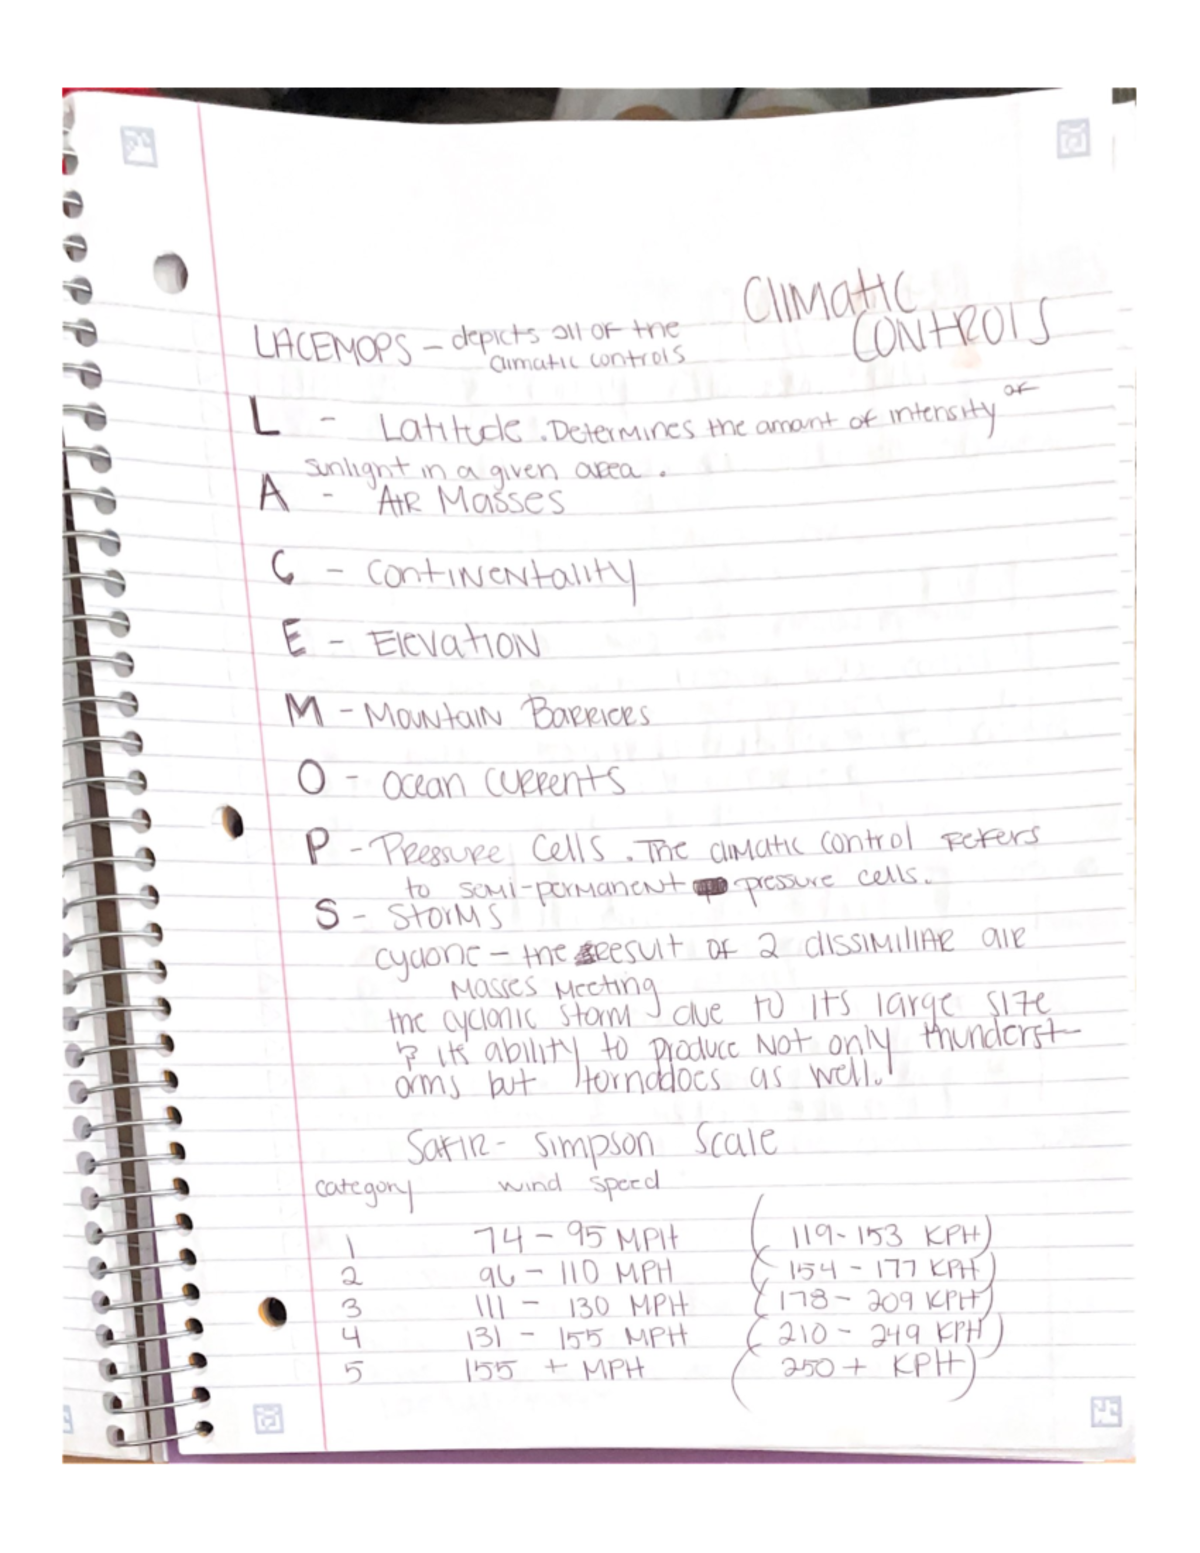 Climatic
Controls
LACEMOPS - depicts all of the
climatic controls
L - Latitude. Determines the amount of intensity of
sunlight in a given area.
A - Air Masses
C - Continentality
E - Elevation
M - Mountain Barriers
O - Ocean Currents
P - Pressure Cells. The climatic control refers
to semi-permanent pressure cells.
S - Storms
cyclone - the result of 2 dissimiliar air
masses meeting
the cyclonic storm due to its large size
& its ability to produce not only thunderst-
orms but tornadoes as well.
Safir - Simpson Scale
category wind speed
1 74 - 95 MPH (119 - 153 KPH)
2 96 - 110 MPH (154 - 177 KPH)
3 111 - 130 MPH (178 - 209 KPH)
4 131 - 155 MPH (210 - 249 KPH)
5 155 + MPH (250 + KPH)